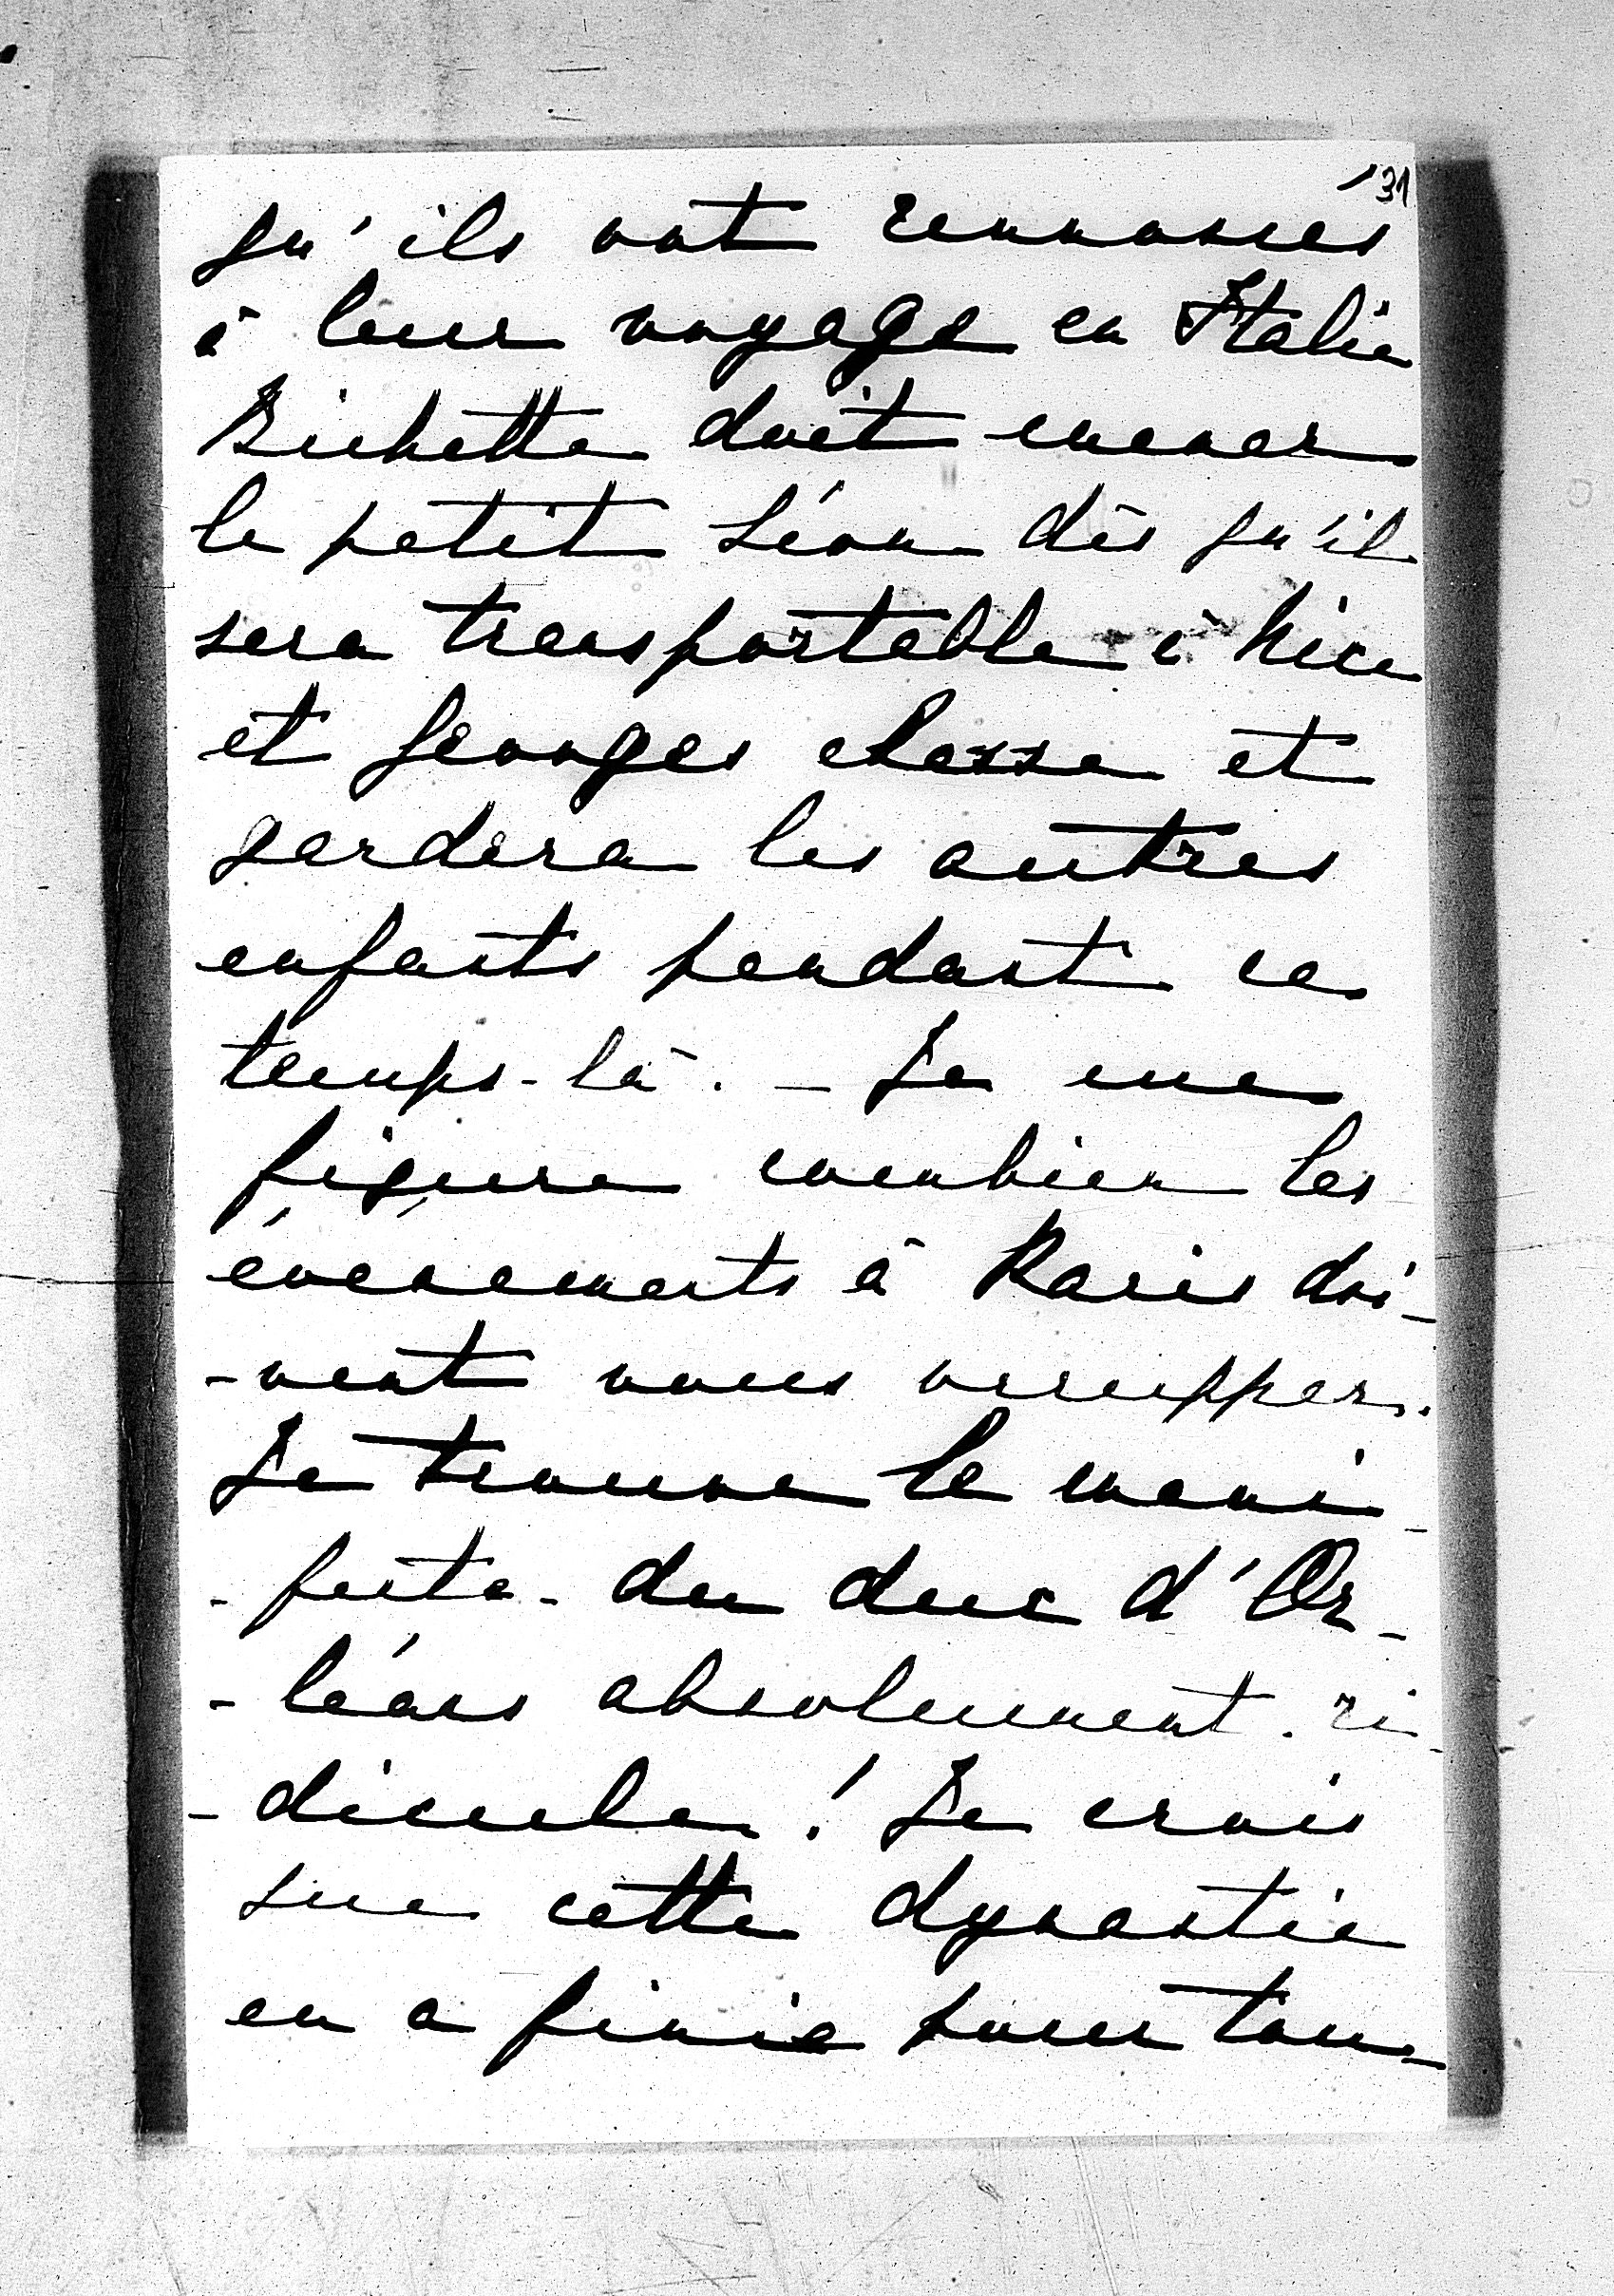 131
qu'ils ont renoncés
à leur voyage en Italie
Bichette doit mener
le petit Léon dès qu'il
sera transportable à Nice
et Georges chasse et
gardera les autres
enfants pendant ce
temps-là. – Je me
figure combien les
événements à Paris doi-
-vent vous occupper.
Je trouve le mani-
-feste du duc d'Or-
-léans absolument ri-
-dicule! Je crois
que cette dynastie
en a finie pour tou-